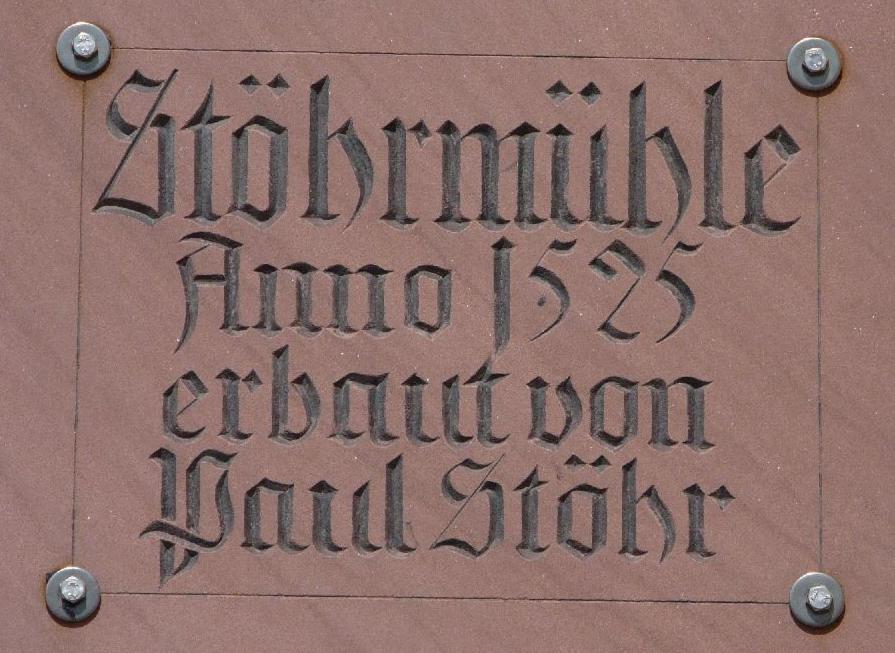 Stöhrmühle
Anno 1525
erbaut von
Paul Stöhr